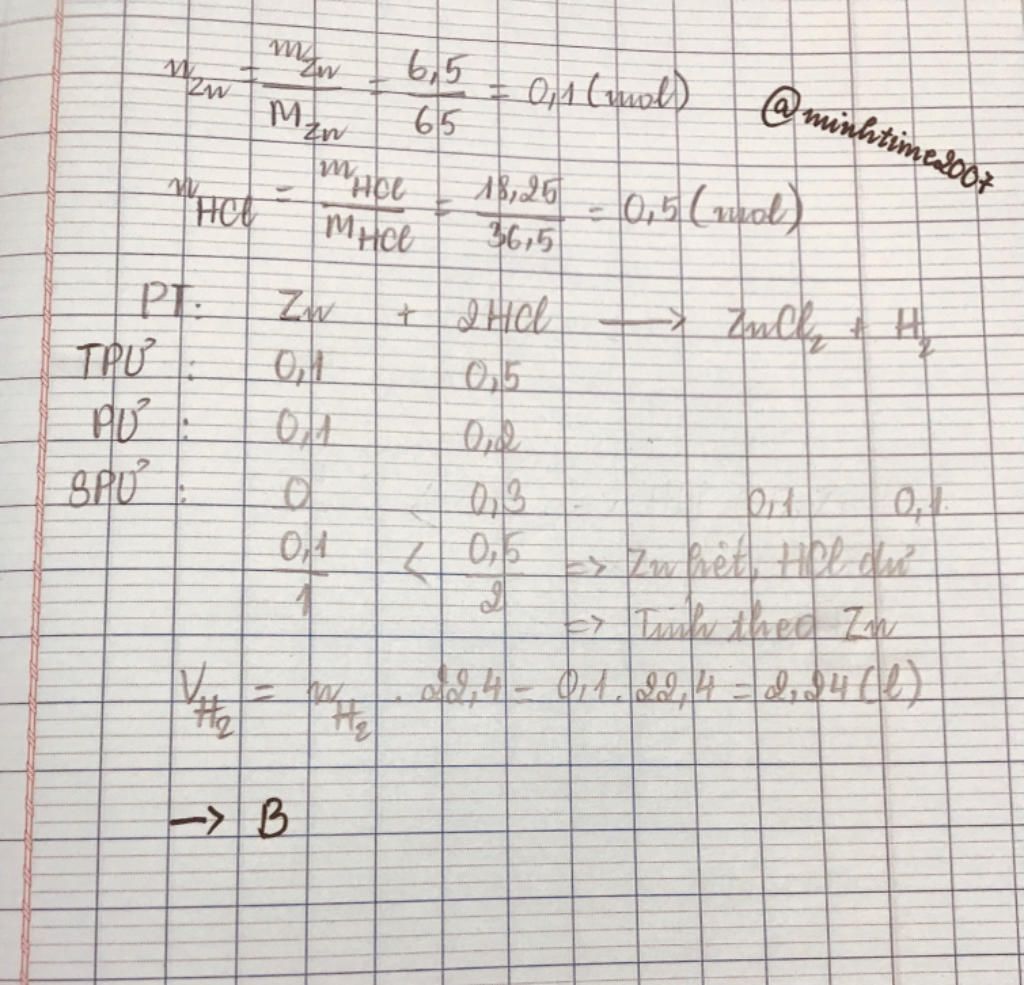 n_Zn = m_Zn / M_Zn = 6,5 / 65 = 0,1 (mol)
@minhtime2007
n_HCl = m_HCl / M_HCl = 18,25 / 36,5 = 0,5 (mol)
PT: Zn + 2HCl → ZnCl₂ + H₂
TPƯ : 0,1 0,5
PƯ : 0,1 0,2
SPƯ : 0 0,3 0,1 0,1
0,1 / 1 < 0,5 / 2 => Zn hết, HCl dư
=> Tính theo Zn
V_H₂ = n_H₂ . 22,4 = 0,1 . 22,4 = 2,24 (l)
→ B